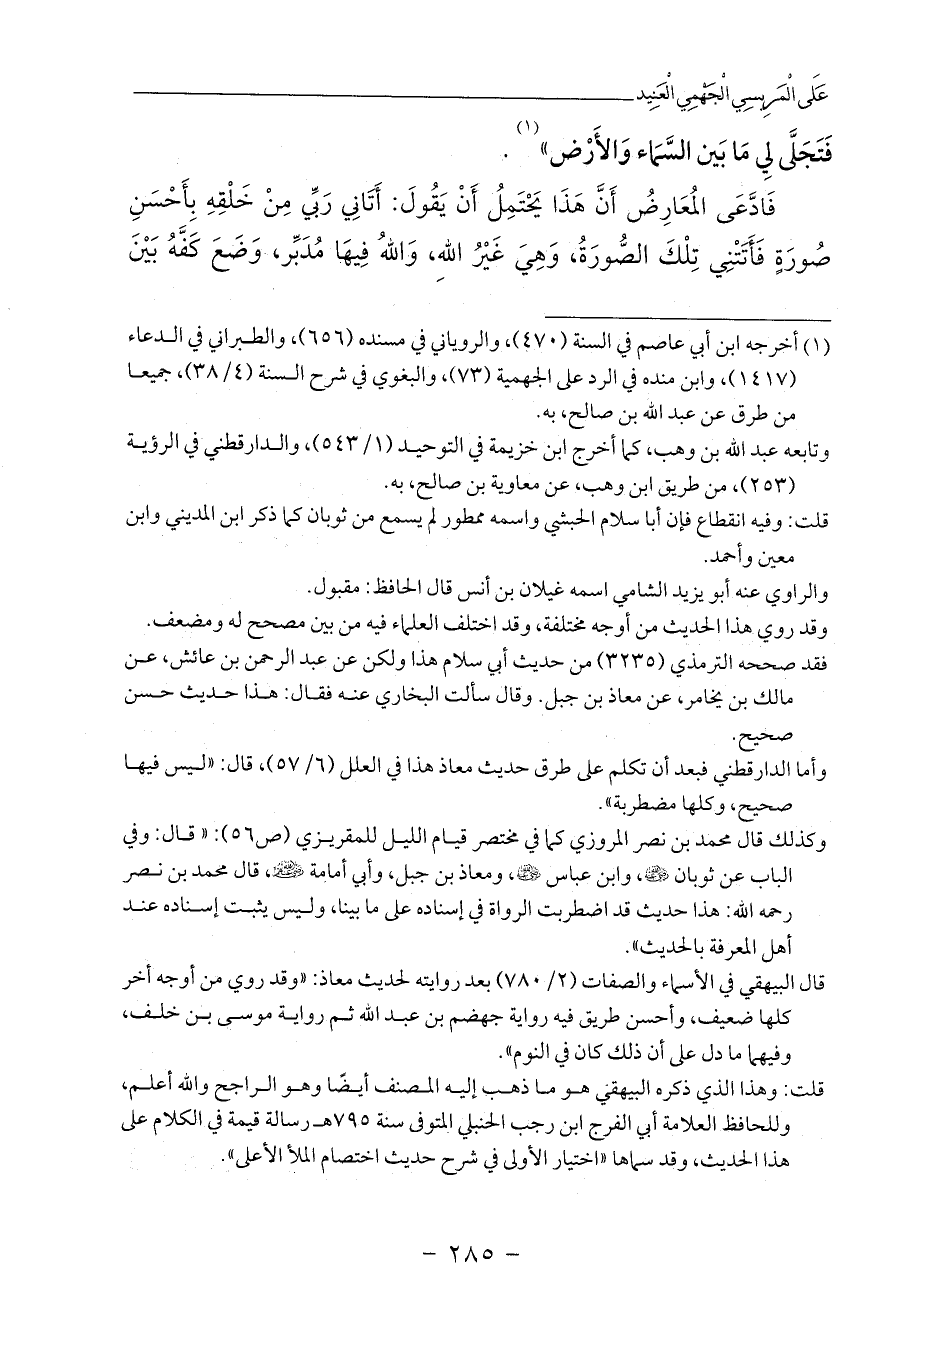 عَلَى الْمَرِيسِي الْجَهْمِي الْعَنِيد
فَتَجَلَّى لِي مَا بَين السَّمَاء وَالأَرْض»(١).
فَادَّعَى المُعَارِضُ أَنَّ هَذَا يَحْتَمِلُ أَنْ يَقُولَ: أَتَانِي رَبِّي مِنْ خَلْقِهِ بِأَحْسَنِ
صُورَةٍ فَأَتَتْنِي تِلْكَ الصُّورَةُ، وَهِيَ غَيْرُ اللهِ، وَاللهُ فِيهَا مُدَبِّر، وَضَعَ كَفَّهُ بَيْنَ
(١) أخرجه ابن أبي عاصم في السنة (٤٧٠)، والروياني في مسنده (٦٥٦)، والطبراني في الدعاء
(١٤١٧)، وابن منده في الرد على الجهمية (٧٣)، والبغوي في شرح السنة (٤/ ٣٨)، جميعا
من طرق عن عبد الله بن صالح، به.
وتابعه عبد الله بن وهب، كما أخرج ابن خزيمة في التوحيد (١/ ٥٤٣)، والدارقطني في الرؤية
(٢٥٣)، من طريق ابن وهب، عن معاوية بن صالح، به.
قلت: وفيه انقطاع فإن أبا سلام الحبشي واسمه ممطور لم يسمع من ثوبان كما ذكر ابن المديني وابن
معين وأحمد.
والراوي عنه أبو يزيد الشامي اسمه غيلان بن أنس قال الحافظ: مقبول.
وقد روي هذا الحديث من أوجه مختلفة، وقد اختلف العلماء فيه من بين مصحح له ومضعف.
فقد صححه الترمذي (٣٢٣٥) من حديث أبي سلام هذا ولكن عن عبد الرحمن بن عائش، عن
مالك بن يخامر، عن معاذ بن جبل. وقال سألت البخاري عنه فقال: هذا حديث حسن
صحيح.
وأما الدارقطني فبعد أن تكلم على طرق حديث معاذ هذا في العلل (٦/ ٥٧)، قال: «ليس فيها
صحيح، وكلها مضطربة».
وكذلك قال محمد بن نصر المروزي كما في مختصر قيام الليل للمقريزي (ص٥٦): «قال: وفي
الباب عن ثوبان ﷺ، وابن عباس ﷺ، ومعاذ بن جبل، وأبي أمامة ﷺ، قال محمد بن نصر
رحمه الله: هذا حديث قد اضطربت الرواة في إسناده على ما بينا، وليس يثبت إسناده عند
أهل المعرفة بالحديث».
قال البيهقي في الأسماء والصفات (٢/ ٧٨٠) بعد روايته لحديث معاذ: «وقد روي من أوجه أخر
كلها ضعيف، وأحسن طريق فيه رواية جهضم بن عبد الله ثم رواية موسى بن خلف،
وفيهما ما دل على أن ذلك كان في النوم».
قلت: وهذا الذي ذكره البيهقي هو ما ذهب إليه المصنف أيضًا وهو الراجح والله أعلم،
وللحافظ العلامة أبي الفرج ابن رجب الحنبلي المتوفى سنة ٧٩٥هـ رسالة قيمة في الكلام على
هذا الحديث، وقد سماها «اختيار الأولى في شرح حديث اختصام الملأ الأعلى».
- ٢٨٥ -